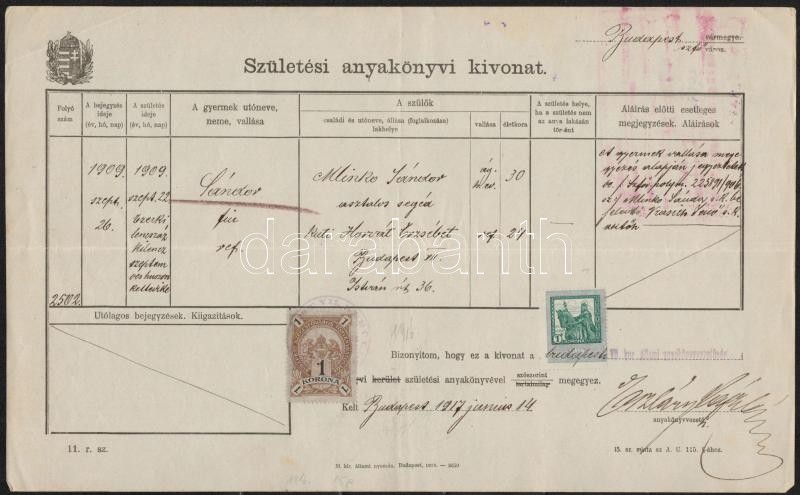 Budapest vármegye.
szfő város.
Születési anyakönyvi kivonat.
Folyó szám
A bejegyzés ideje (év, hó, nap)
A születés ideje (év, hó, nap)
A gyermek utóneve, neme, vallása
A szülők
családi és utóneve, állása (foglalkozása) lakhelye
vallása
életkora
A születés helye, ha a születés nem az anya lakásán történt
Aláírás előtti esetleges megjegyzések. Aláírások
2502.
1909.
szept.
26.
1909.
szept. 22
Ezerki
lencszáz
kilencz
szeptem
ber huszon
kettedike
Sándor
fiú
ref.
Mlinko Sándor
asztalos segéd
ág.
h. ev.
30
Kuti Horvát Erzsébet
ref
24
Budapest VII.
István út 36.
A gyermek vallása meg
egyezés alapján jegyeztetett
be
Mlinkó Sándor s. k. be
jelentő
darabanth
Utólagos bejegyzések. Kiigazítások.
1 KORONA
1
Bizonyítom, hogy ez a kivonat a budapesti
vi kerület születési anyakönyvével szószerint tartalmilag megegyez.
Kelt Budapest 1917 junius 14.
anyakönyvvezető
11. r. sz.
M. kir. állami nyomda. Budapest,
15. sz. minta az A. U. 115. §-ához.